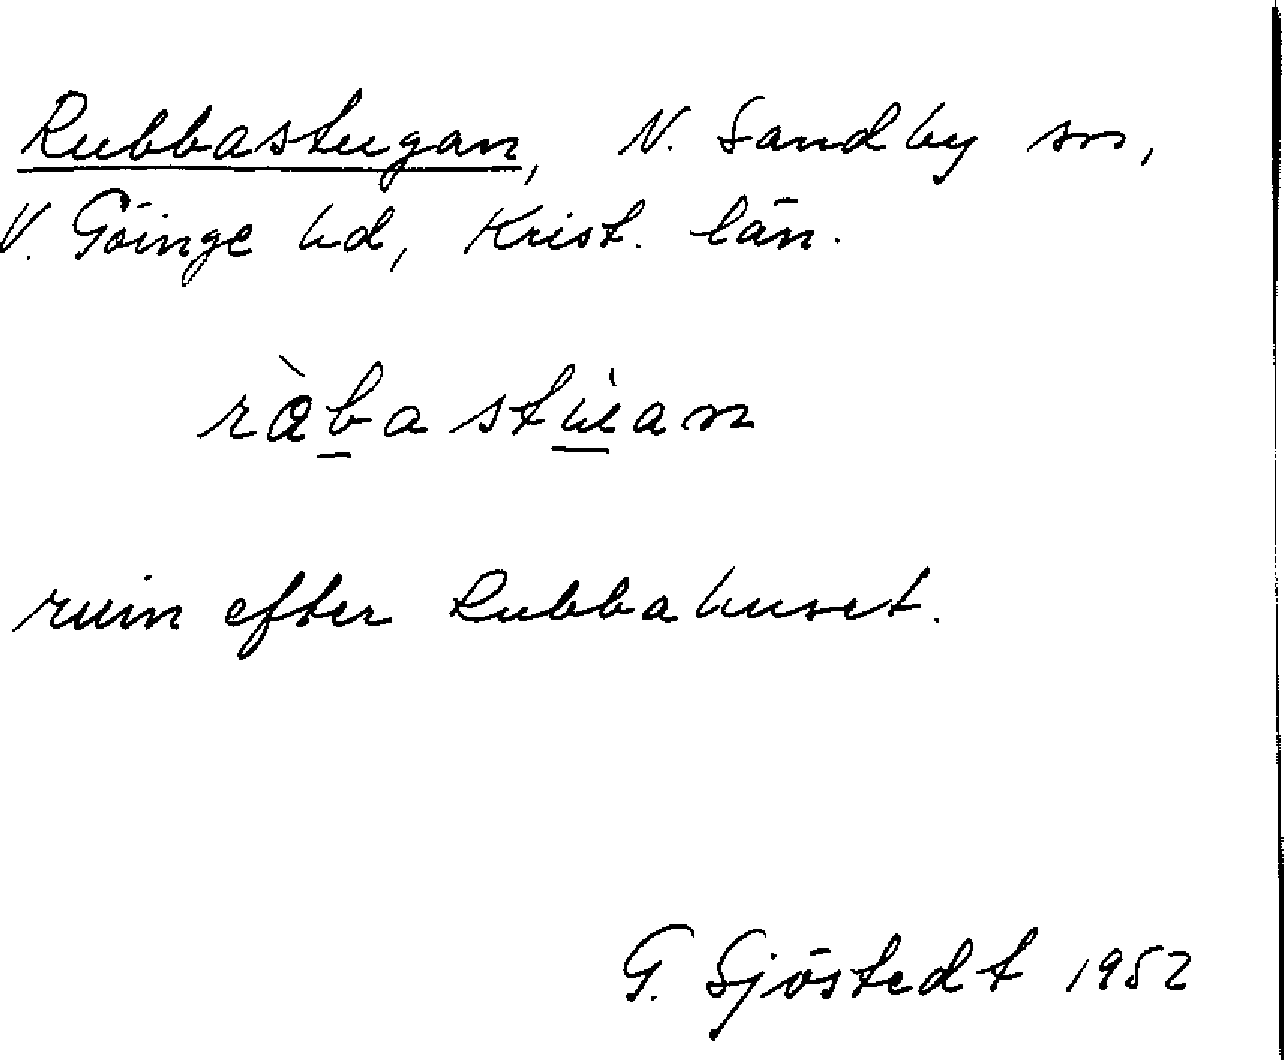 Rubbastugan, N. Sandby sn,
V. Göinge hd, Krist. län.
ràbastùan
ruin efter Rubbahuset.
G. Sjöstedt 1952